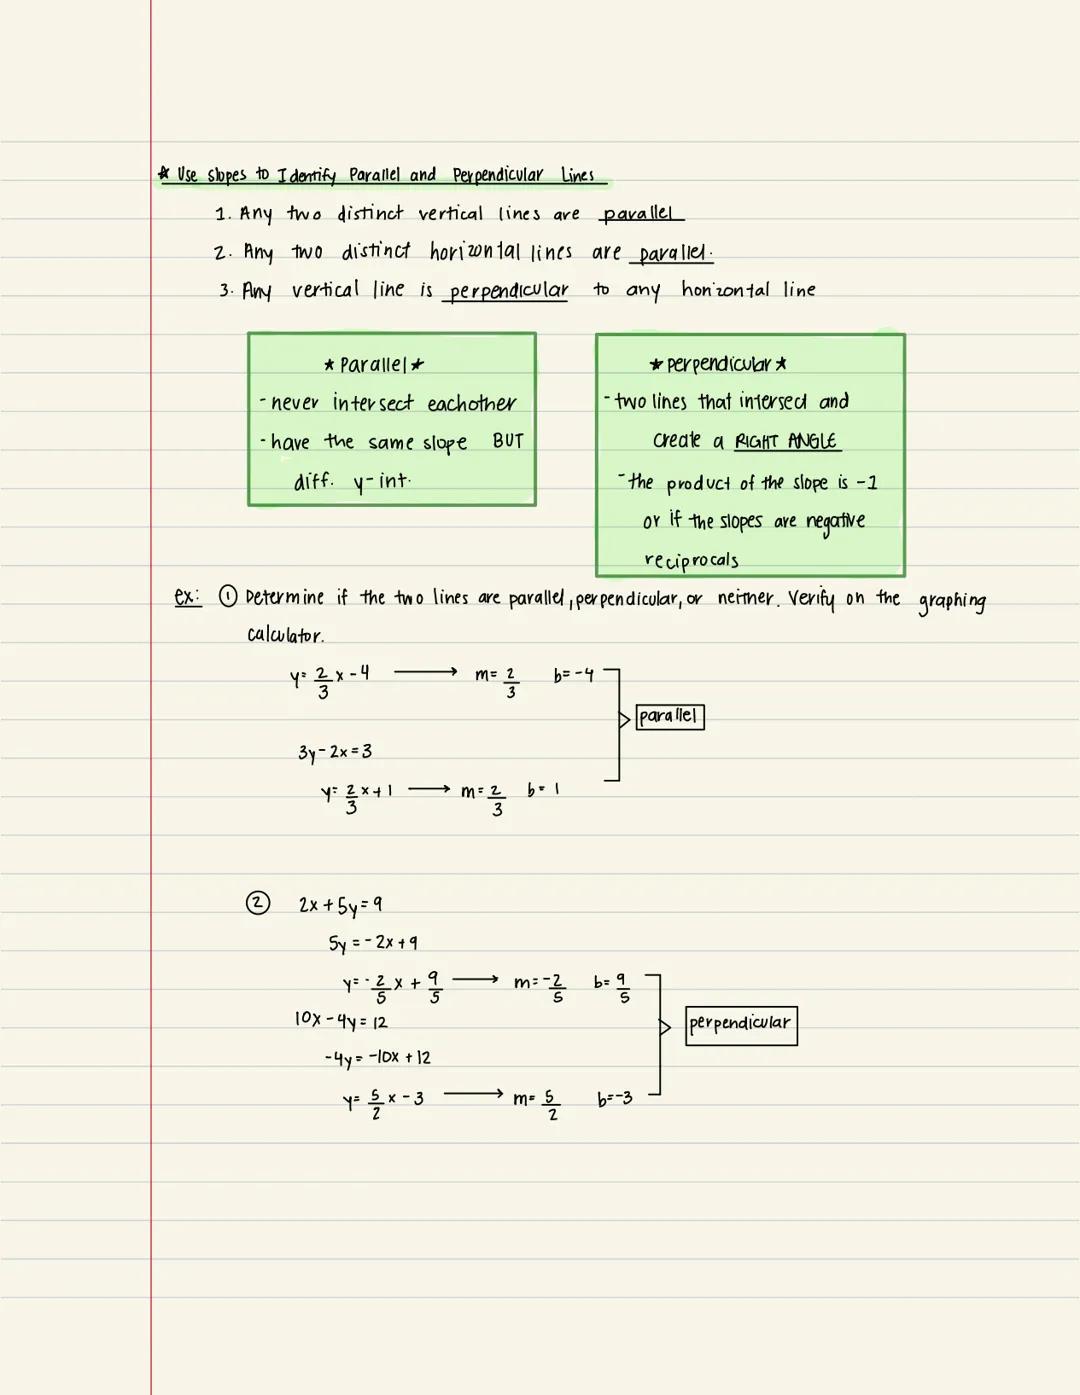 * Use slopes to Identify Parallel and Perpendicular Lines
1. Any two distinct vertical lines are parallel
2. Any two distinct horizontal lines are parallel.
3. Any vertical line is perpendicular to any horizontal line
* Parallel *
- never intersect eachother
- have the same slope BUT
diff. y-int.
* perpendicular *
- two lines that intersect and
create a RIGHT ANGLE
- the product of the slope is -1
or if the slopes are negative
reciprocals
ex: ① Determine if the two lines are parallel, perpendicular, or neither. Verify on the graphing
calculator.
y = 2/3 x - 4 → m = 2/3 b = -4
parallel
3y - 2x = 3
y = 2/3 x + 1 → m = 2/3 b = 1
② 2x + 5y = 9
5y = -2x + 9
y = -2/5 x + 9/5 → m = -2/5 b = 9/5
10x - 4y = 12
perpendicular
-4y = -10x + 12
y = 5/2 x - 3 → m = 5/2 b = -3